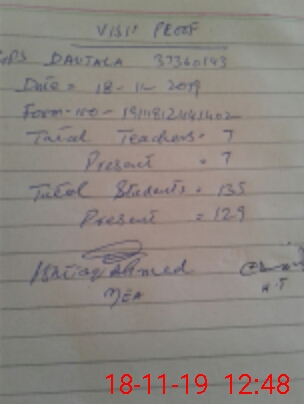 VISIT PROOF
GPS DAUJALA 37360143
Date = 18-11-2019
Form-no -
Total Teachers = 7
Present = 7
Total Students = 135
Present = 129
Ahmed
MEA
H.T
18-11-19 12:48